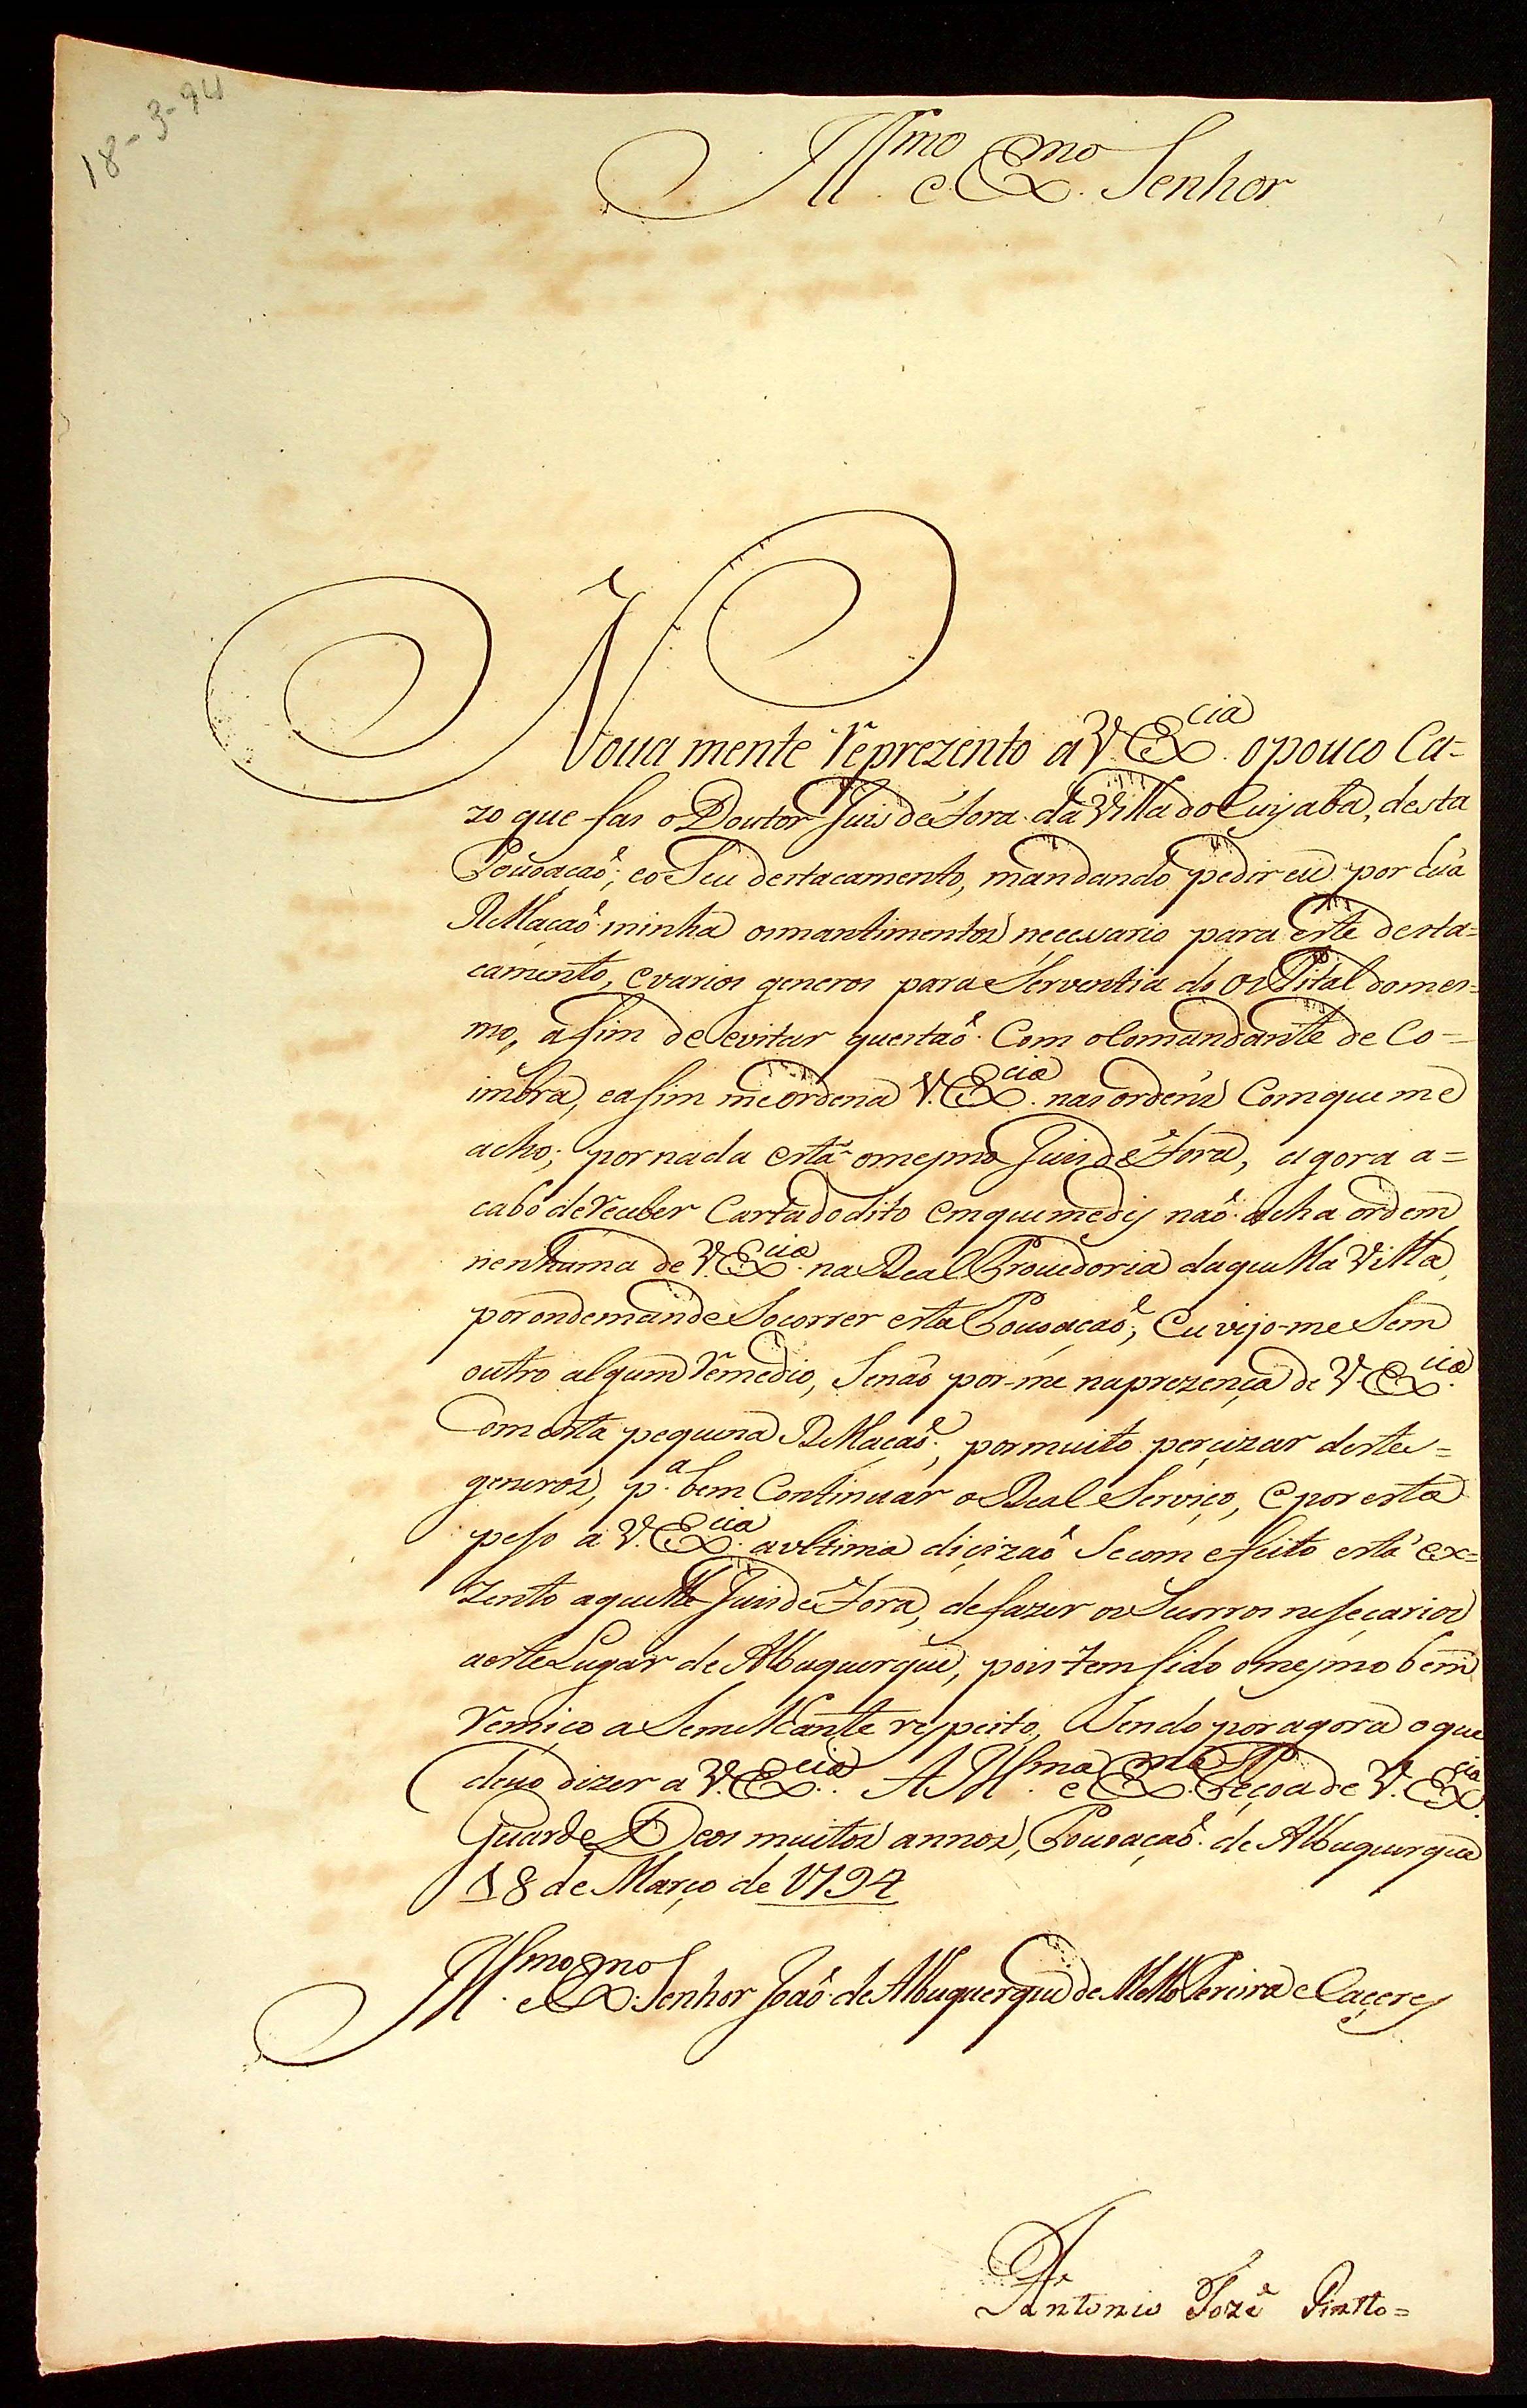 18-3-94
Ill.mo e Ex.mo Senhor
Noua mente reprezento a V. Ex.cia o pouco Ca=
zo que fas o Doutor Juis de Fora da Villa do Cuyaba, desta
Pouoacaõ; eo Seu destacamento, mandando pedir eu por hua
Rellaçaõ minha os mantimentos necesario para este desta=
camento, e varios generos para Serventia do OsPital do mes=
mo, a fim de evitar questaõ Com o Comandante de Co=
imbra, e asim me ordena V. Ex.cia nas ordens Com que me
acho; por nada está o mesmo Juis de Fora, agora a=
cabo de receber Carta do dito em que me dis naõ acha ordem
nenhuma de V. Ex.cia na Real Prouedoria daquella Villa,
por onde mande Socorrer esta Pouoaçaõ; Eu vejo-me Sem
outro algum remedio, Senaõ por-me na prezença de V. Ex.cia
Com esta pequena Rellaçaõ; por muito perçizar destes=
generos, p.a bem Continuar o Real Serviço, e por esta
peso a V. Ex.cia a vltima diçizaõ Se com efeito está ex=
zento aquelle Juis de Fora, de fazer os Sucorros nesecarios
aeste Lugar de Albuquerque, pois tem sido o mesmo bem
remiço a Semelhante respeito, Sendo por agora o que
deuo dizer a V. Ex.cia. A Ill.ma e Ex.ma Peçoa de V. Ex.cia
Guarde Deos muitos annos, Pouoaçaõ de Albuquerque
18 de Março de 1794
Ill.mo e Ex.mo Senhor Joaõ de Albuquerque de Mello Pereira e Caçeres
Antonio Jozé Pintto=